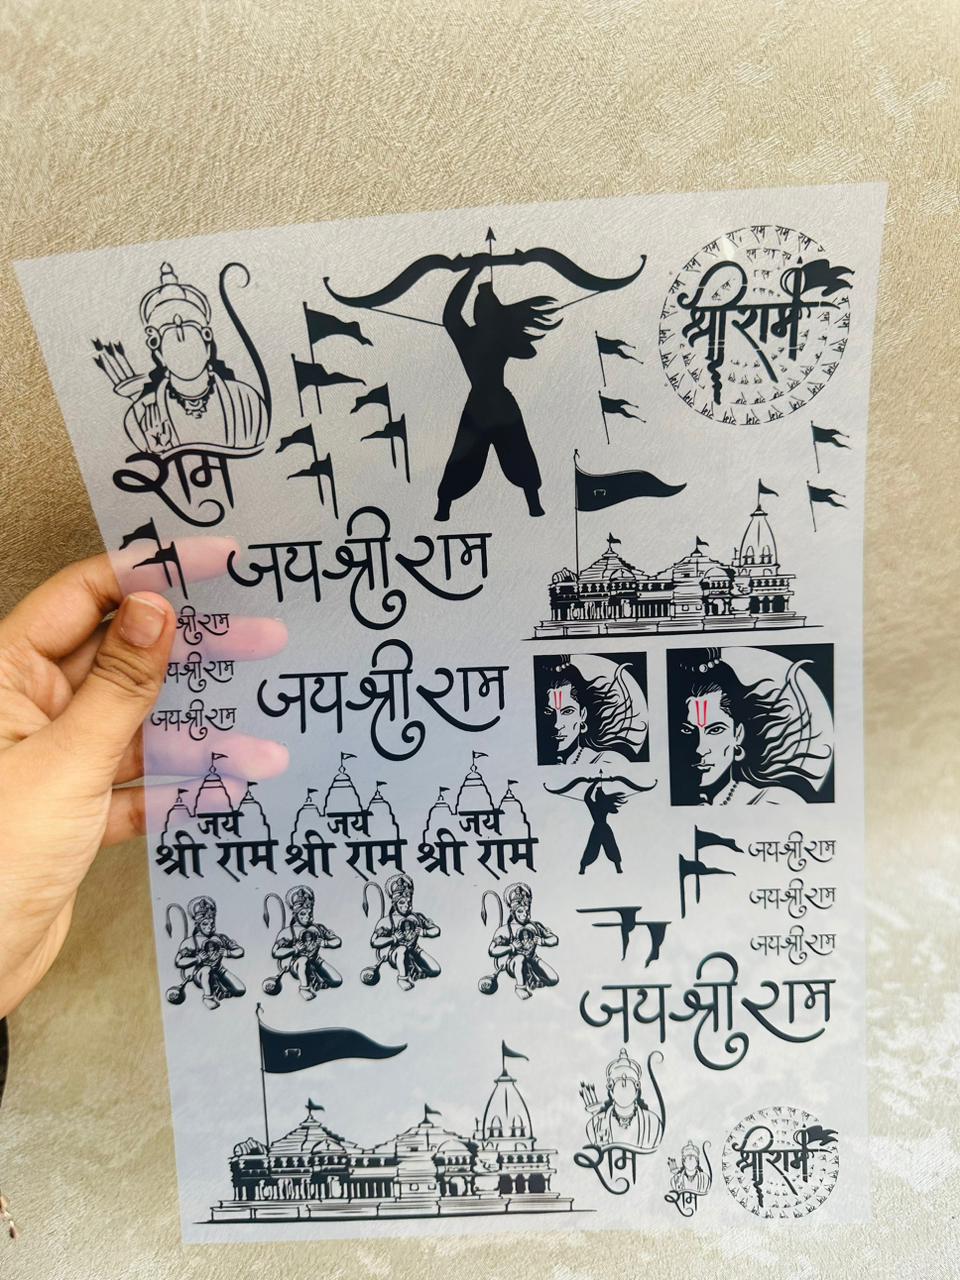 श्री राम
राम
जय श्री राम
श्री राम
जय श्री राम
जय श्री राम
जय श्री राम
जय जय जय
श्री राम श्री राम श्री राम
जय श्री राम
जय श्री राम
जय श्री राम
जय श्री राम
राम
राम
श्री राम